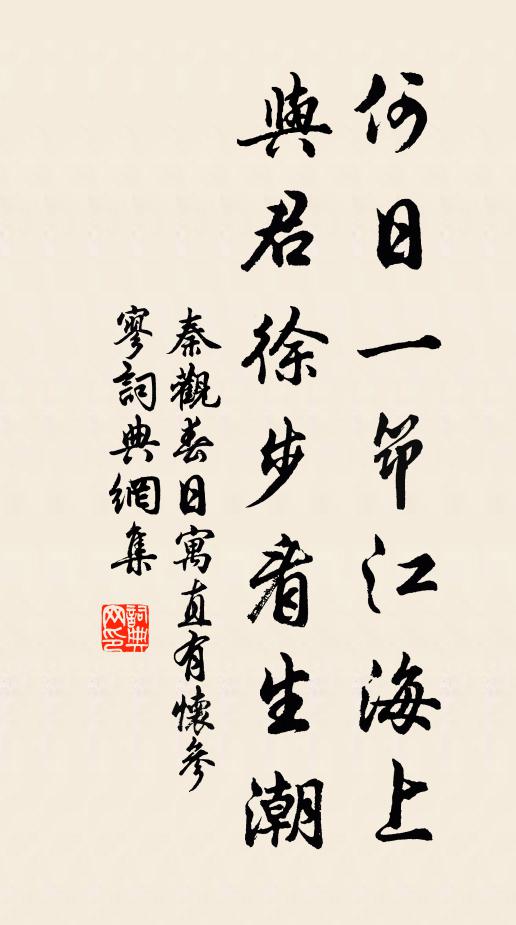 何日一笻江海上
與君徐步看生潮
秦觀春日寓直有懷參
寥詞典網集
詞典
网印